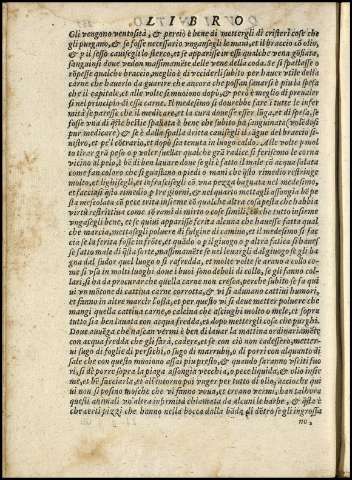 LIBRO
Gli vengono ventosità, & perciò è bene di mettergli di cristeri cose che
gli purgano, & se fosse necessario ungansegli le mani, et il braccio cõ olio,
& p il sesso cauisegli lo sterco, et se apparisse in essi qualche vena gõfiata,
sanguinisi doue vedon massimamẽte delle vene della coda. Se si spallasse o
rõpesse qualche braccio, meglio è di ucciderli subito per hauer vtile della
carne che hauerlo da guarire che ancora che possan sanarsi è piu la spesa
che il capitale, et alle volte si muoiono dopò, & però è meglio di preualer
si nel principio di essa carne. Il medesimo si dourebbe fare í tutte le infer
mità se paresse che il medicare, et la cura douesse esser luga, et di spesa, se
fosse vna di q̃lle bestie spallata è bene che subito sia sanguinata (volẽdosi
pur medicare) & se è dalla spalla dritta cauisegli il sãgue del braccio si-
nistro, et pe'l cõtrario, et dopò stia tenuta in luogo caldo. Alle volte p mol
to tirar grã peso o p voler suellar qualche grã radice si feriscono le corna
vicino al pelo, è bẽ di ben lauare doue se gli è fatto il male cõ acqua salata
come fan coloro che si guastano i piedi o mani che q̃sto rimedio restringe
molto, et leghisegli, et infascisegli cõ vna pezza bagnata nel medesimo,
et faccisi q̃sto rimedio p tre giorni, et nel quarto mettasegli assongia bẽ pe
sta mescolata cõ pece trita insieme cõ qualche altra cosa pesta che habbia
virtù restrittiua come sõ rami di mirto o cose simili, cõ che tutto insieme
vngasegli bene, et se quiui apparisse ferita alcuna che hauesse fatta qual
che marcia, mettasegli poluere di fulgine di camino, et il medesimo si fac
cia se la ferita fosse in frõte, et quãdo o p il giuogo o p altra fatica si hauesse
se fatto male di q̃lla sorte, massimamẽte se nel leuargli dal giuogo se gli ba
gna dal sudor quel luogo o si rafredda, et molte volte se arano a collo co-
me si vsa in molti luoghi doue i buoi sono deboli di collo, se gli fanno col-
lari, si ha da procurar che quella carne non cresca, perche subito se fa quì
ui vn mõtone di cattiua carne corrotta, & vi si adunano cattiui humori,
et fanno in altre marcir l'ossa, et per questo vi si deue metter poluere che
mangi quella cattiua carne, o calcina che asciughi molto o mele, et sopra
tutto sia benlauata con acqua fredda, et dopo mettergli cosa che purghi.
Doue auuẽga che nascan vermi è ben di lauar la mattina ordinariamẽte
con acqua fredda che gli farà, cadere, et se con ciò non cadessero, metter-
ui sugo di foglie di perschi, o sugo di marrubio, o di porri con alquanto di
sale che con questo muoiono assai piu presto, & quando saranno vsciti fuo
ri, si dè porre sopra la piaga assongia vecchia, o pece liquida, & olio insie
me, et bẽ fasciarla, et all'intorno poi vnger per tutto di olio, acciocche qui
ui non si posino mosche che vi fanno uoua, et creano vermi, vien talhora
questi animali vn'altra infirmità chiamata da alcuni le barbe, & q̃sta è
che certi pizzi che hanno nella bocca dalla bãda di dẽtro se gli ingrossa
no,